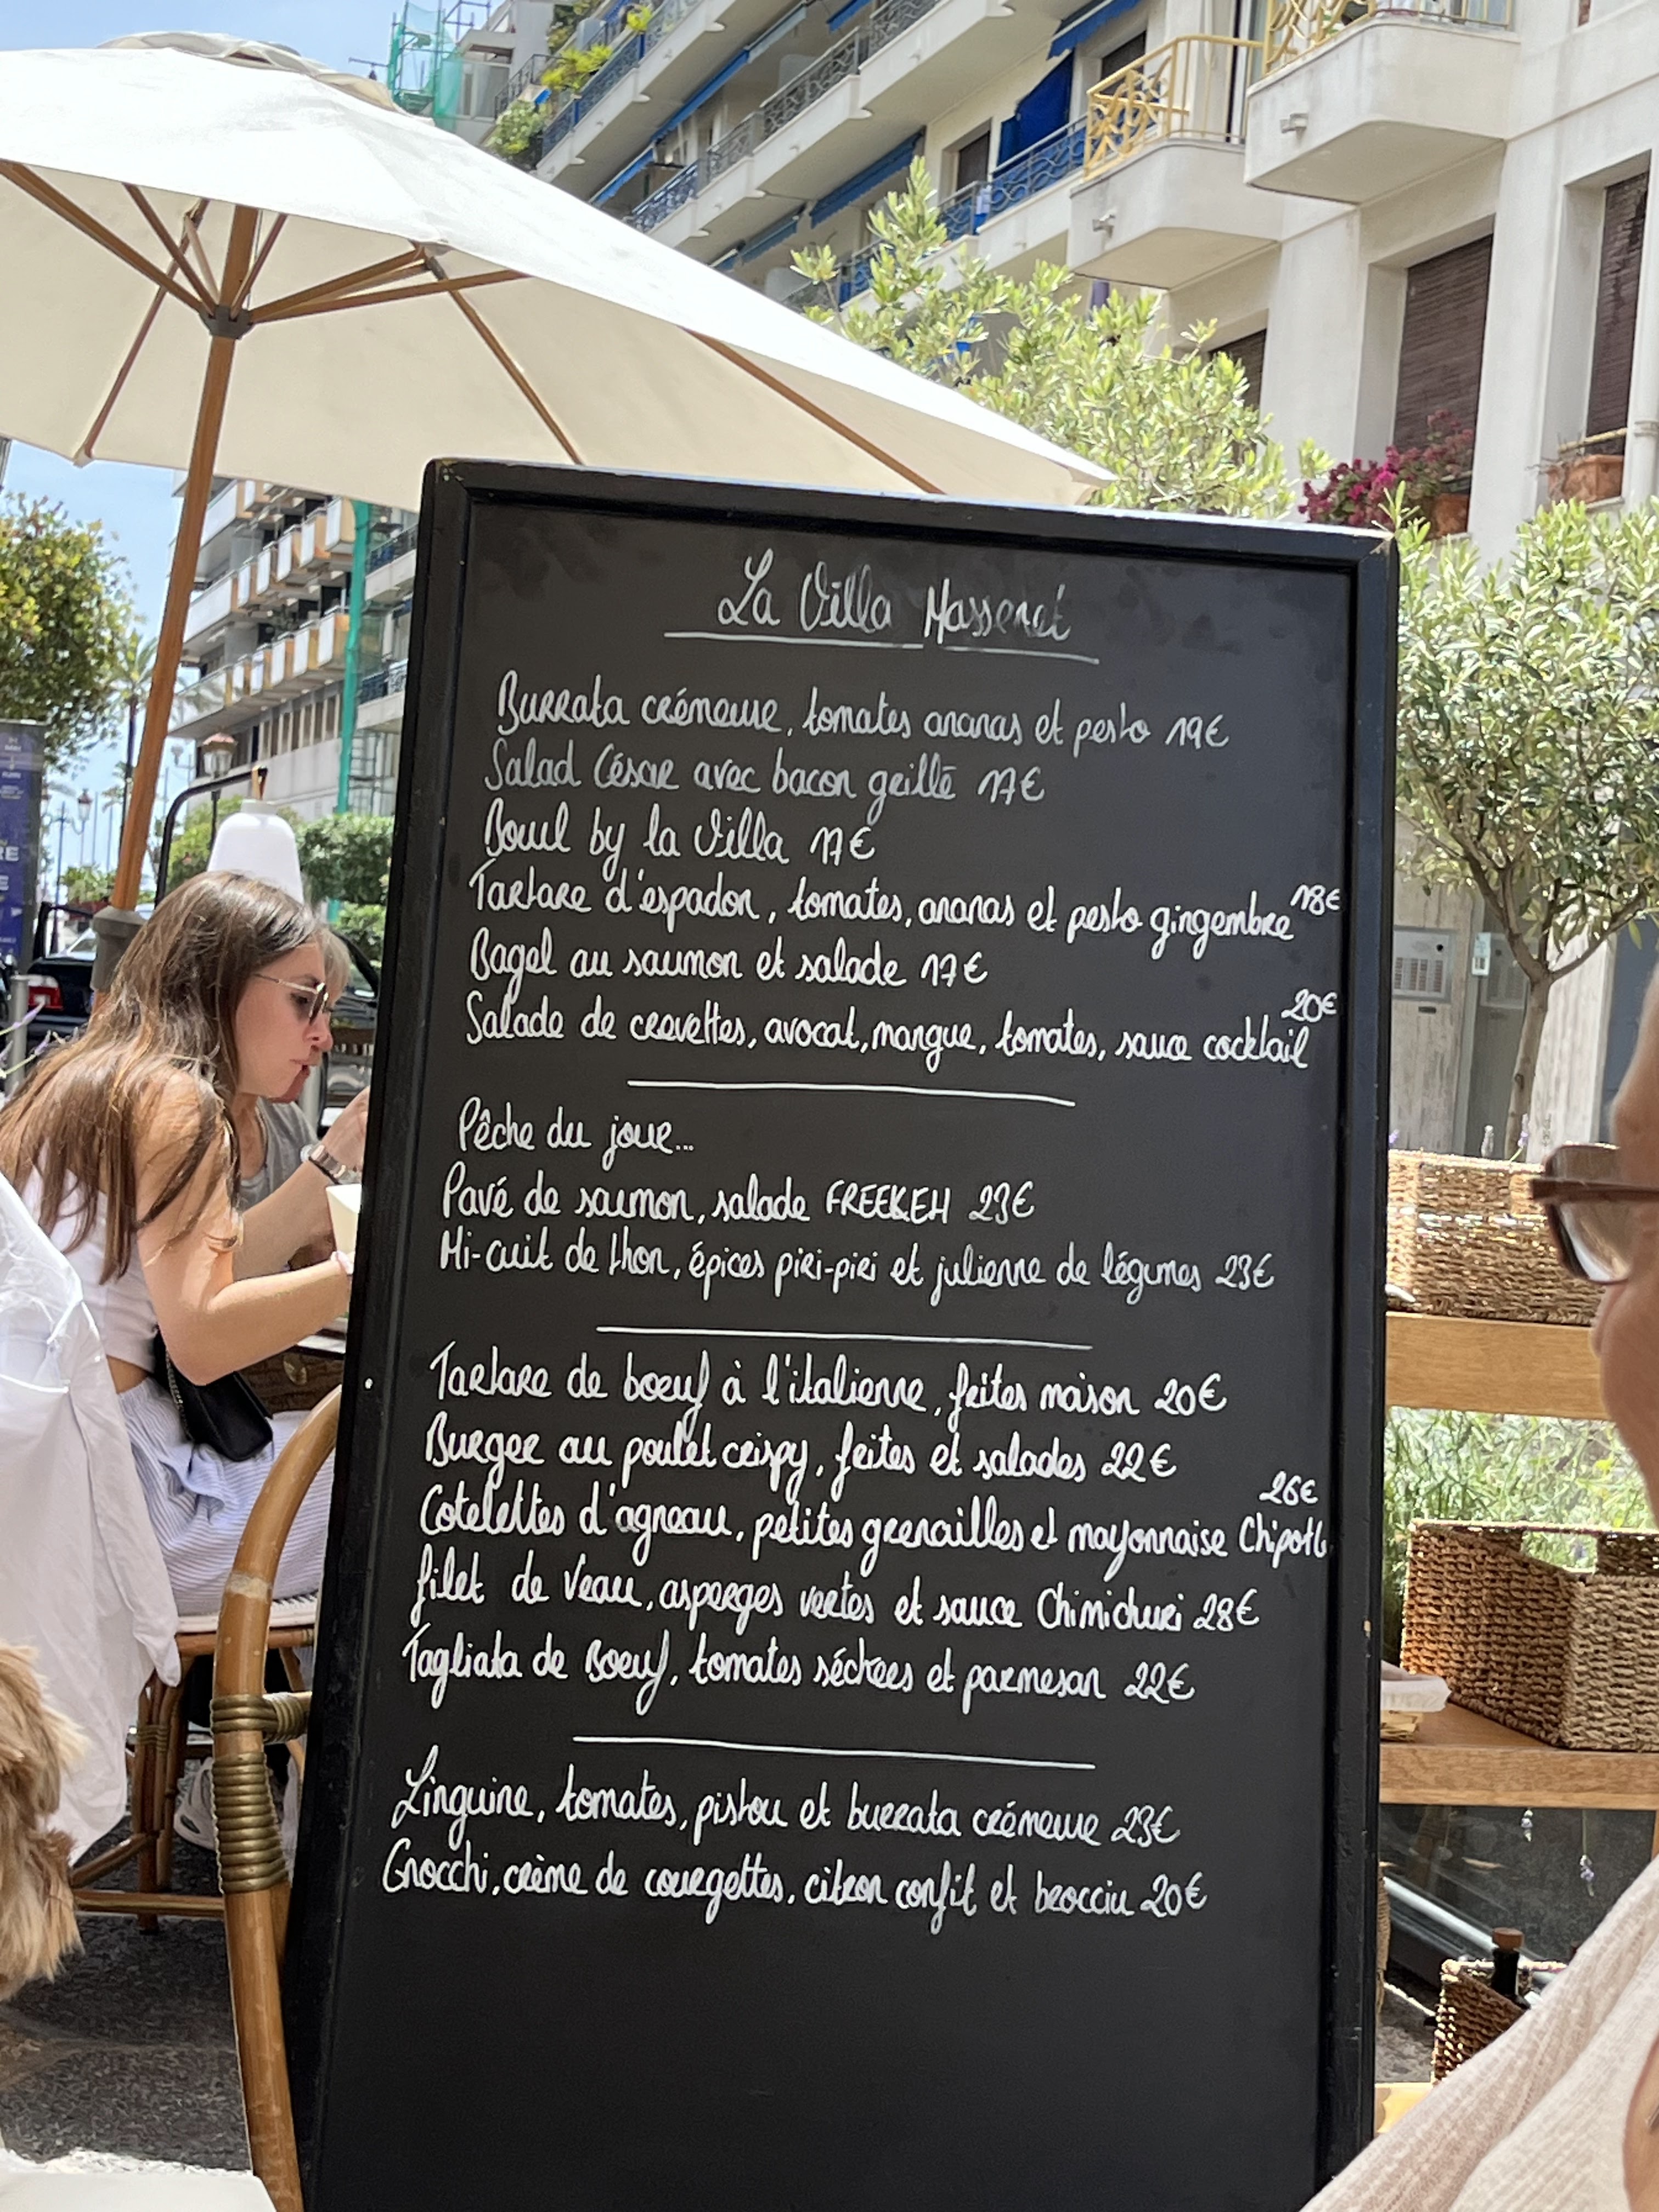 La Villa Massenet
Burrata crémeuse, tomates ananas et pesto 19€
Salad César avec bacon grillé 17€
Bowl by la Villa 17€
Tartare d'espadon, tomates, ananas et pesto gingembre 18€
Bagel au saumon et salade 17€
Salade de crevettes, avocat, mangue, tomates, sauce cocktail 20€
Pêche du jour...
Pavé de saumon, salade FREEKEH 23€
Mi-cuit de thon, épices piri-piri et julienne de légumes 23€
Tartare de boeuf à l'italienne, frites maison 20€
Burger au poulet crispy, frites et salades 22€
Cotelettes d'agneau, petites grenailles et mayonnaise Chipotle 26€
filet de Veau, asperges vertes et sauce Chimichuri 28€
Tagliata de Boeuf, tomates séchées et parmesan 22€
Linguine, tomates, pistou et burrata crémeuse 23€
Gnocchi, crème de courgettes, citron confit et brocciu 20€